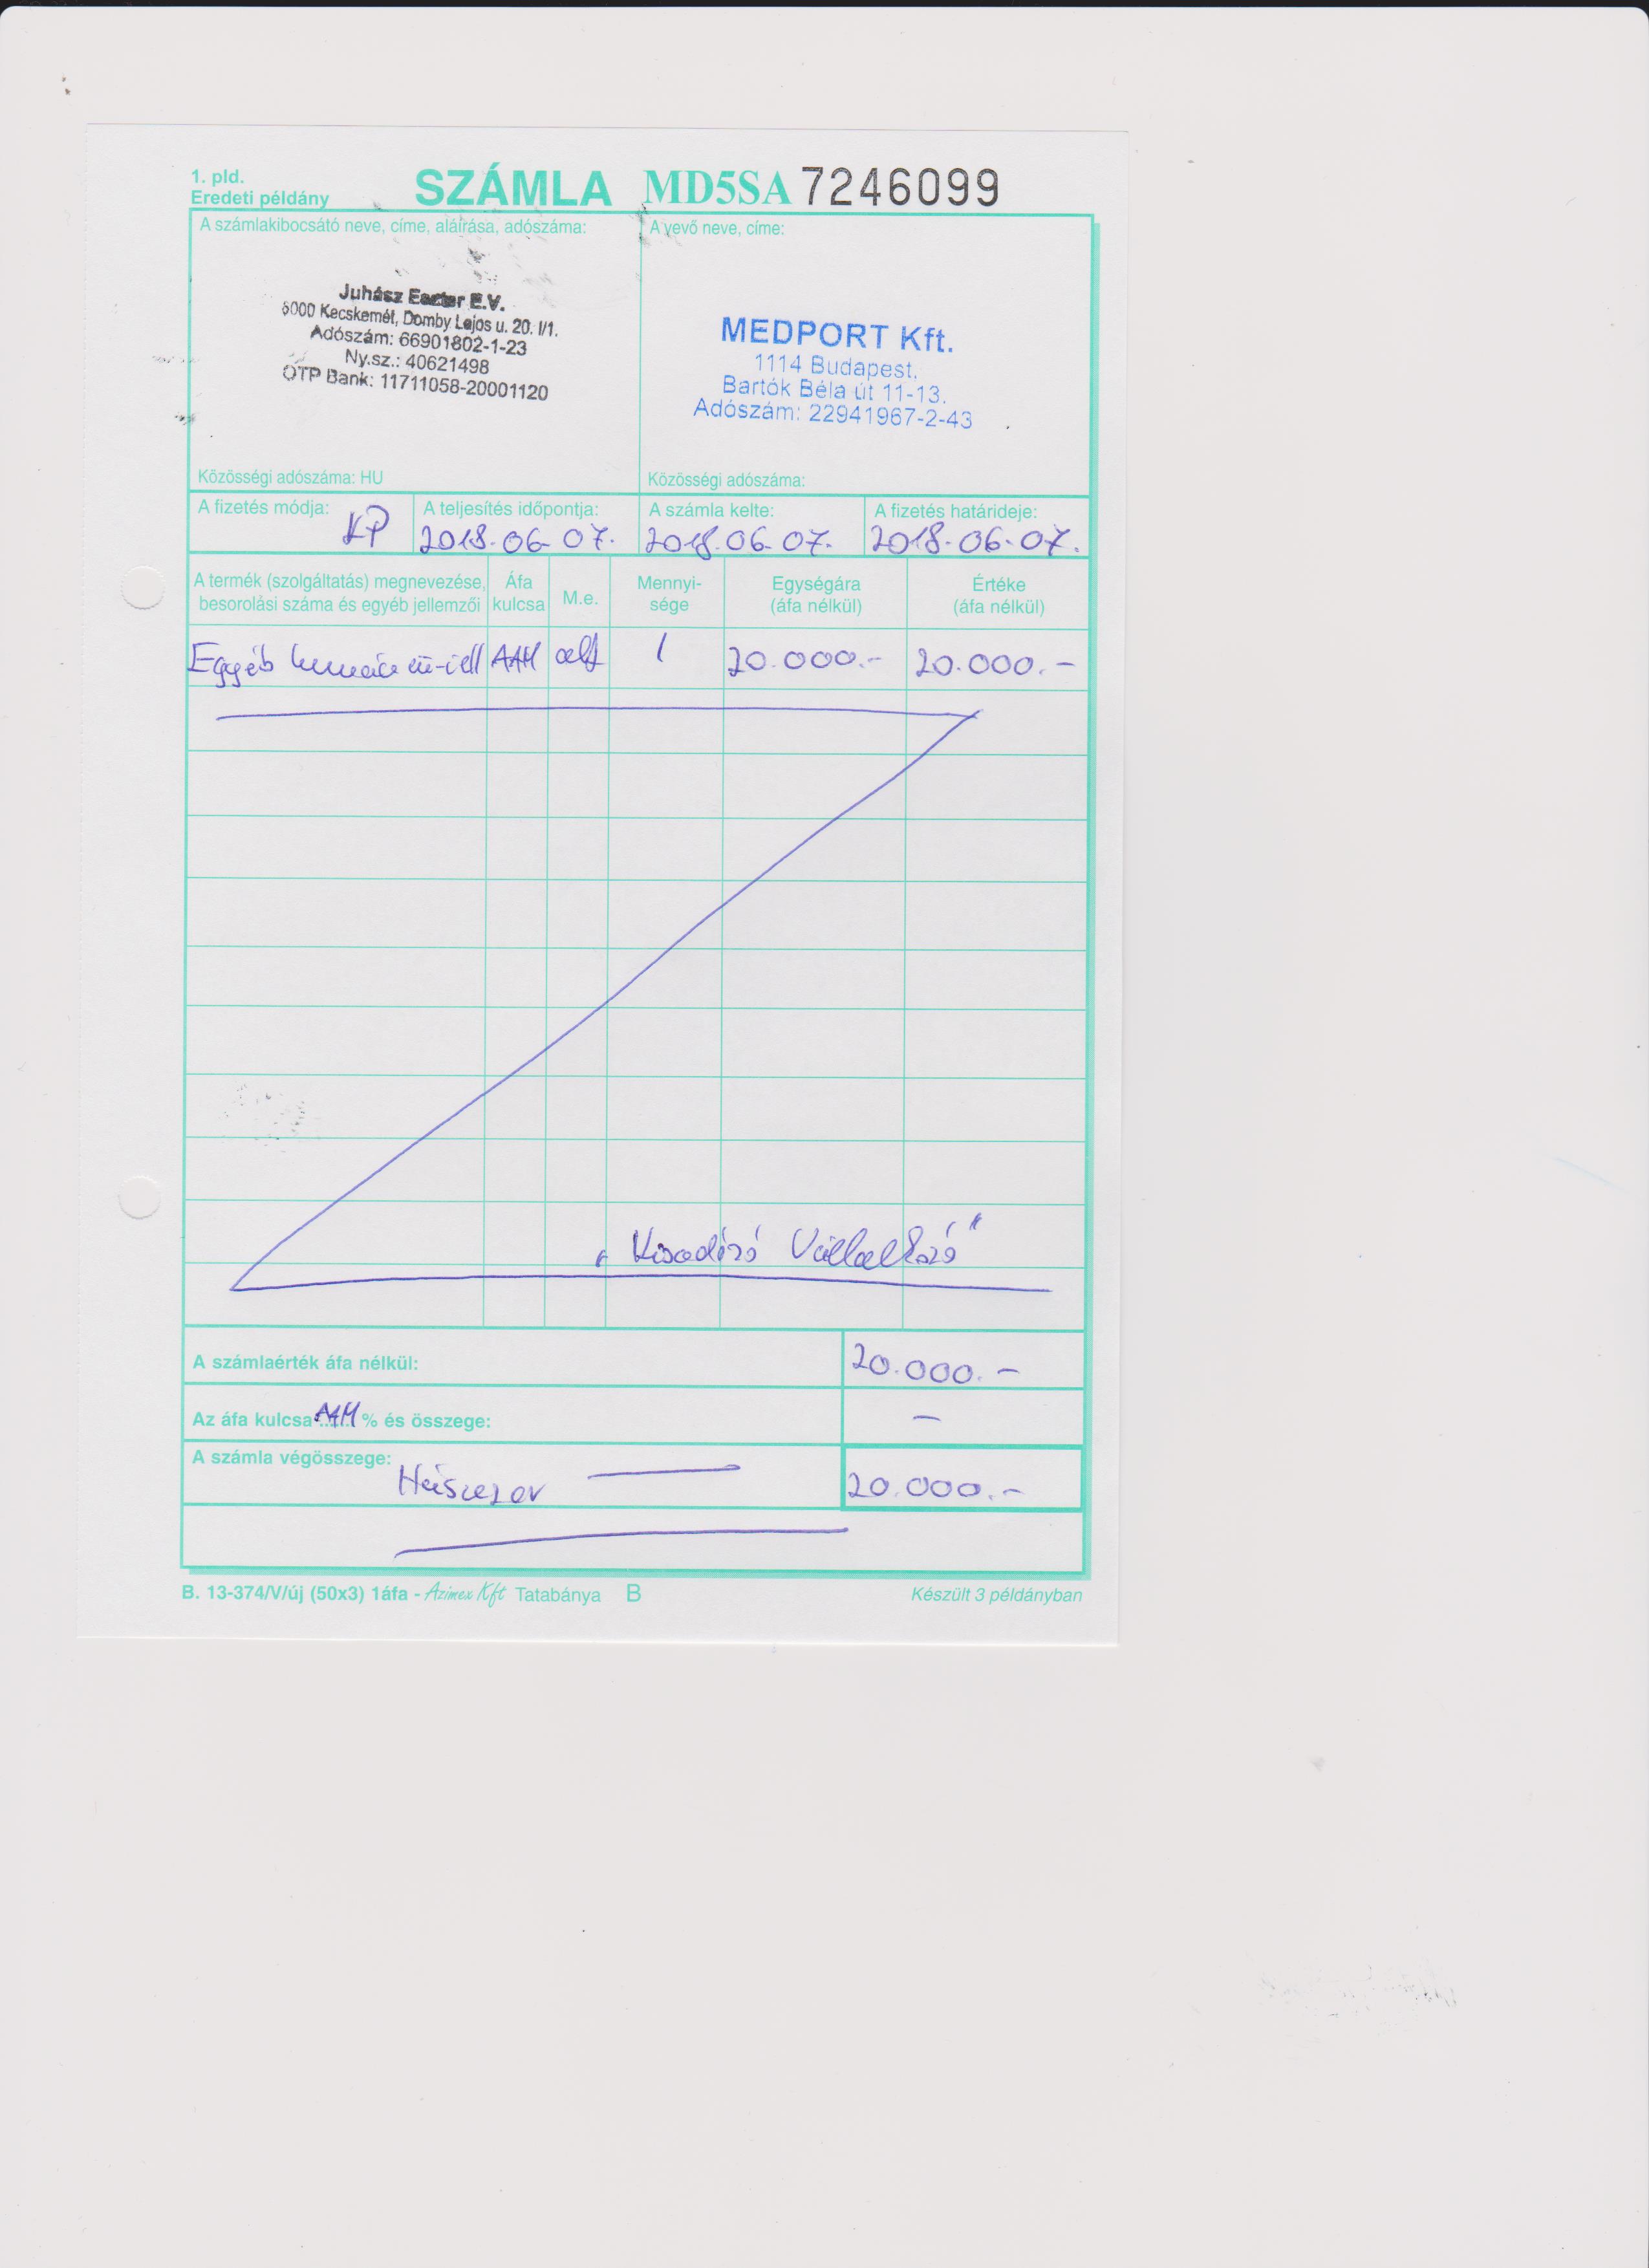 1. pld.
Eredeti példány
SZÁMLA MD5SA 7246099
A számlakibocsátó neve, címe, aláírása, adószáma:
Juhász Eszter E.V.
6000 Kecskemét, Domby Lajos u. 20. I/1.
Adószám: 66901802-1-23
Ny.sz.: 40621498
OTP Bank: 11711058-20001120
Közösségi adószáma: HU
A vevő neve, címe:
MEDPORT Kft.
1114 Budapest,
Bartók Béla út 11-13.
Adószám: 22941967-2-43
Közösségi adószáma:
A fizetés módja: KP
A teljesítés időpontja: 2018.06.07.
A számla kelte: 2018.06.07.
A fizetés határideje: 2018.06.07.
A termék (szolgáltatás) megnevezése, besorolási száma és egyéb jellemzői
Áfa kulcsa
M.e.
Mennyi-sége
Egységára (áfa nélkül)
Értéke (áfa nélkül)
Egyéb humán eü-i ell AAM alk 1 20.000.- 20.000.-
„Kisadózó Vállalkozó"
A számlaérték áfa nélkül: 20.000.-
Az áfa kulcsa AAM % és összege: -
A számla végösszege: Húszezer 20.000.-
B. 13-374/V/új (50x3) 1áfa - Azimex Kft Tatabánya B
Készült 3 példányban